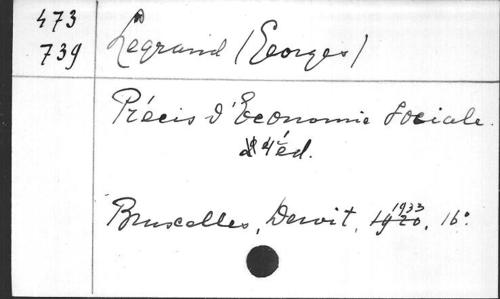 473
739
Legrand (Georges)
Précis d'Économie Sociale.
4e éd.
Bruxelles, Dewit, 1920 1933, 16°